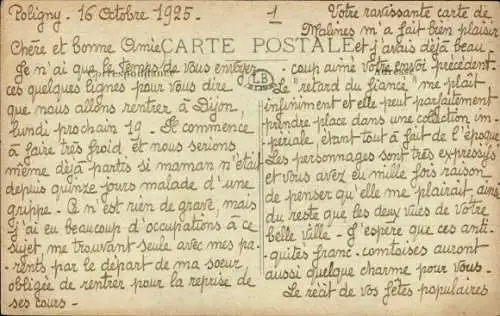 Poligny. 16 Octobre 1925.
1
CARTE POSTALE
Correspondance
Adresse
LB
Chère et bonne Amie
Je n'ai que le temps de vous envoyer
ces quelques lignes pour vous dire
que nous allons rentrer à Dijon,
lundi prochain 19. Il commence
à faire très froid et nous serions
même déjà partis si maman n'était
depuis quinze jours malade d'une
grippe. Ce n'est rien de grave, mais
j'ai eu beaucoup d'occupations à ce
sujet, me trouvant seule avec mes pa-
rents par le départ de ma sœur,
obligée de rentrer pour la reprise de
ses cours.
Votre ravissante carte de
Malines m'a fait bien plaisir
et j'avais déjà beau-
coup aimé votre envoi précédent.
Le "retard du fiancé" me plaît
infiniment et elle peut parfaitement
prendre place dans une collection im-
périale, étant tout à fait de l'époque
Les personnages sont très expressifs
et vous avez eu mille fois raison
de penser qu'elle me plairait, ainsi
du reste que les deux vues de votre
belle ville. J'espère que ces anti-
quités franc-comtoises auront
aussi quelque charme pour vous.
Le récit de vos fêtes populaires